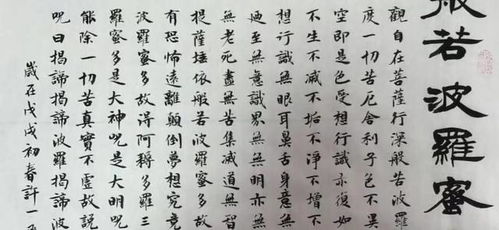 般若波羅蜜
觀自在菩薩行深般若波羅
度一切苦厄舍利子色不異
空即是色受想行識亦復如
不生不滅不垢不淨不增不
想行識無眼耳鼻舌身意無
迺至無意識界無無明亦無
無老死盡無苦集滅道無智
提薩埵依般若波羅蜜多故
有恐怖遠離顛倒夢想究竟
波羅蜜多故得阿耨多羅三
羅蜜多是大神呪是大明呪
能除一切苦真實不虛故說
呪曰揭諦揭諦波羅揭諦波
歲在戊戌初春許一